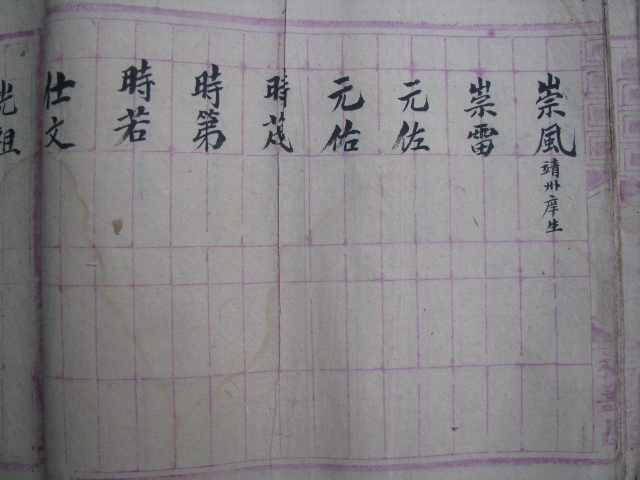 崇風靖州庠生
崇雷
元佐
元佑
時茂
時第
時若
仕文
光祖